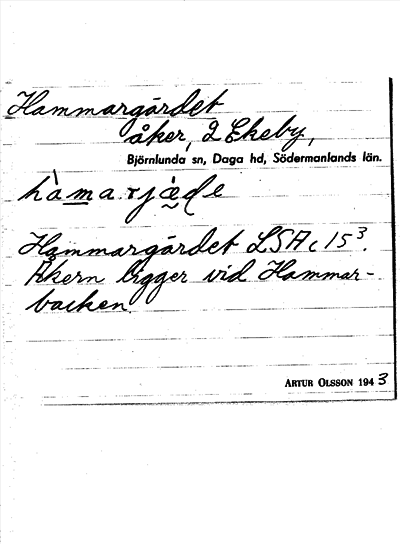 Hammargärdet
åker, 2 Ekeby,
Björnlunda sn, Daga hd, Södermanlands län.
hàmarjæ̀de
Hammargärdet LSA c 15³.
Åkern ligger vid Hammar-
backen.
ARTUR OLSSON 1943